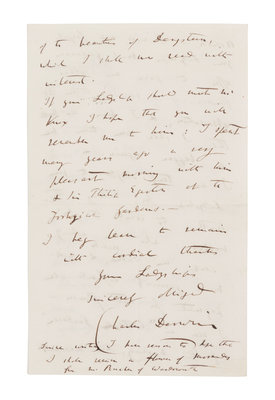 of the beauties of
which I shall now read with
interest.
If your Ladyship should meet Mr.
Knox I hope that you will
remember me to him: I spent
many years ago a very
pleasant morning with him
& his
Zoological Gardens.—
I beg leave to remain
with cordial thanks
Your Ladyship's
sincerely obliged
Charles Darwin
Since writing I have reason to hope that
I shall receive a flower of
from Mr. Rucker of Wandsworth